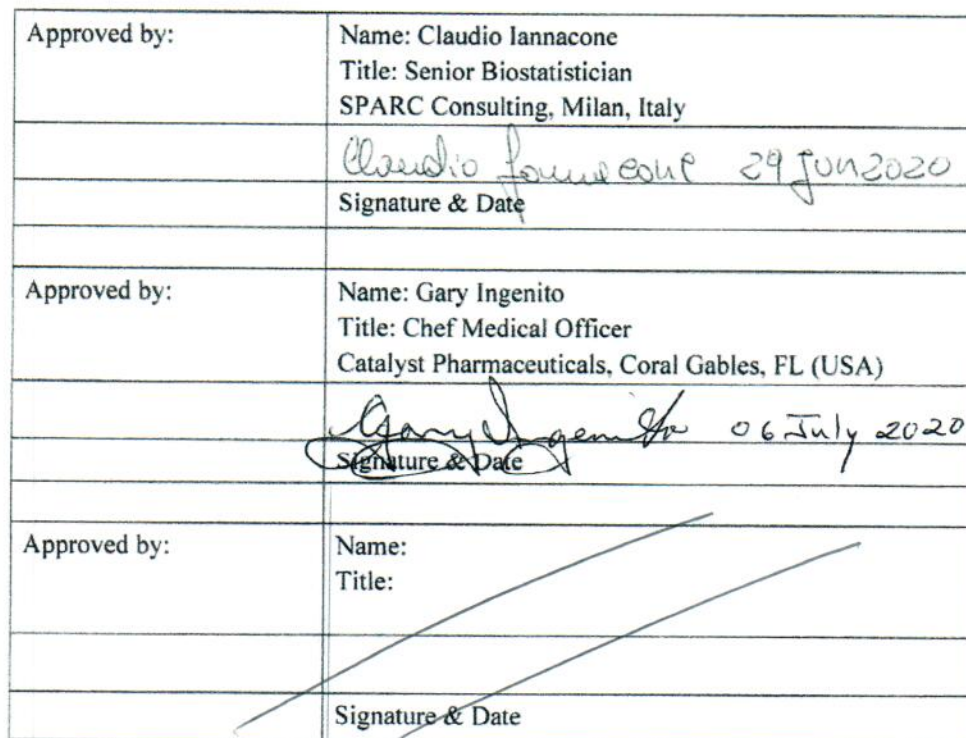 Approved by:
Name: Claudio Iannacone
Title: Senior Biostatistician
SPARC Consulting, Milan, Italy
Claudio Iannacone 29 Jun 2020
Signature & Date
Approved by:
Name: Gary Ingenito
Title: Chef Medical Officer
Catalyst Pharmaceuticals, Coral Gables, FL (USA)
Gary Ingenito 06 July 2020
Signature & Date
Approved by:
Name:
Title:
Signature & Date